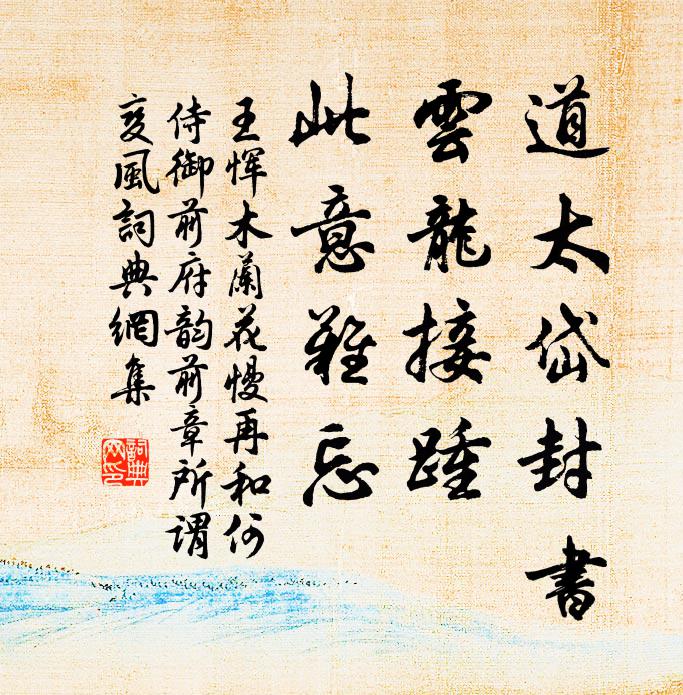 道太岱封書
雲龍接踵
此意難忘
王惲木蘭花慢再和何
侍御前府韵前章所谓
变風詞典網集
詞典網印